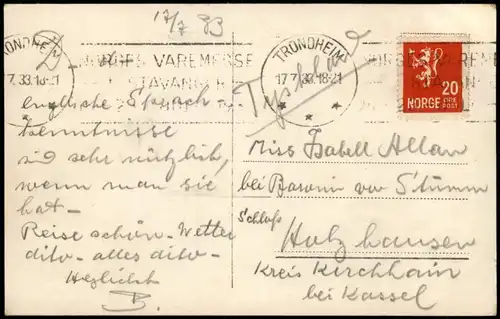 17/7 33
TRONDHEIM
17.7.33.18-21
NORGES VAREMESSE
STAVANGER
TRONDHEIM
17.7.33.18-21
NORGE
20
ØRE
POST
Tyskland
englische Sprach
kenntnisse
sind sehr nützlich,
wenn man sie
hat –
Reise schön – Wetter
dito – alles dito –
Herzlichst
B.
Miss Isabell Allan
bei Baronin von Stumm
Schloß
Holzhausen
Kreis Kirchhain
bei Kassel